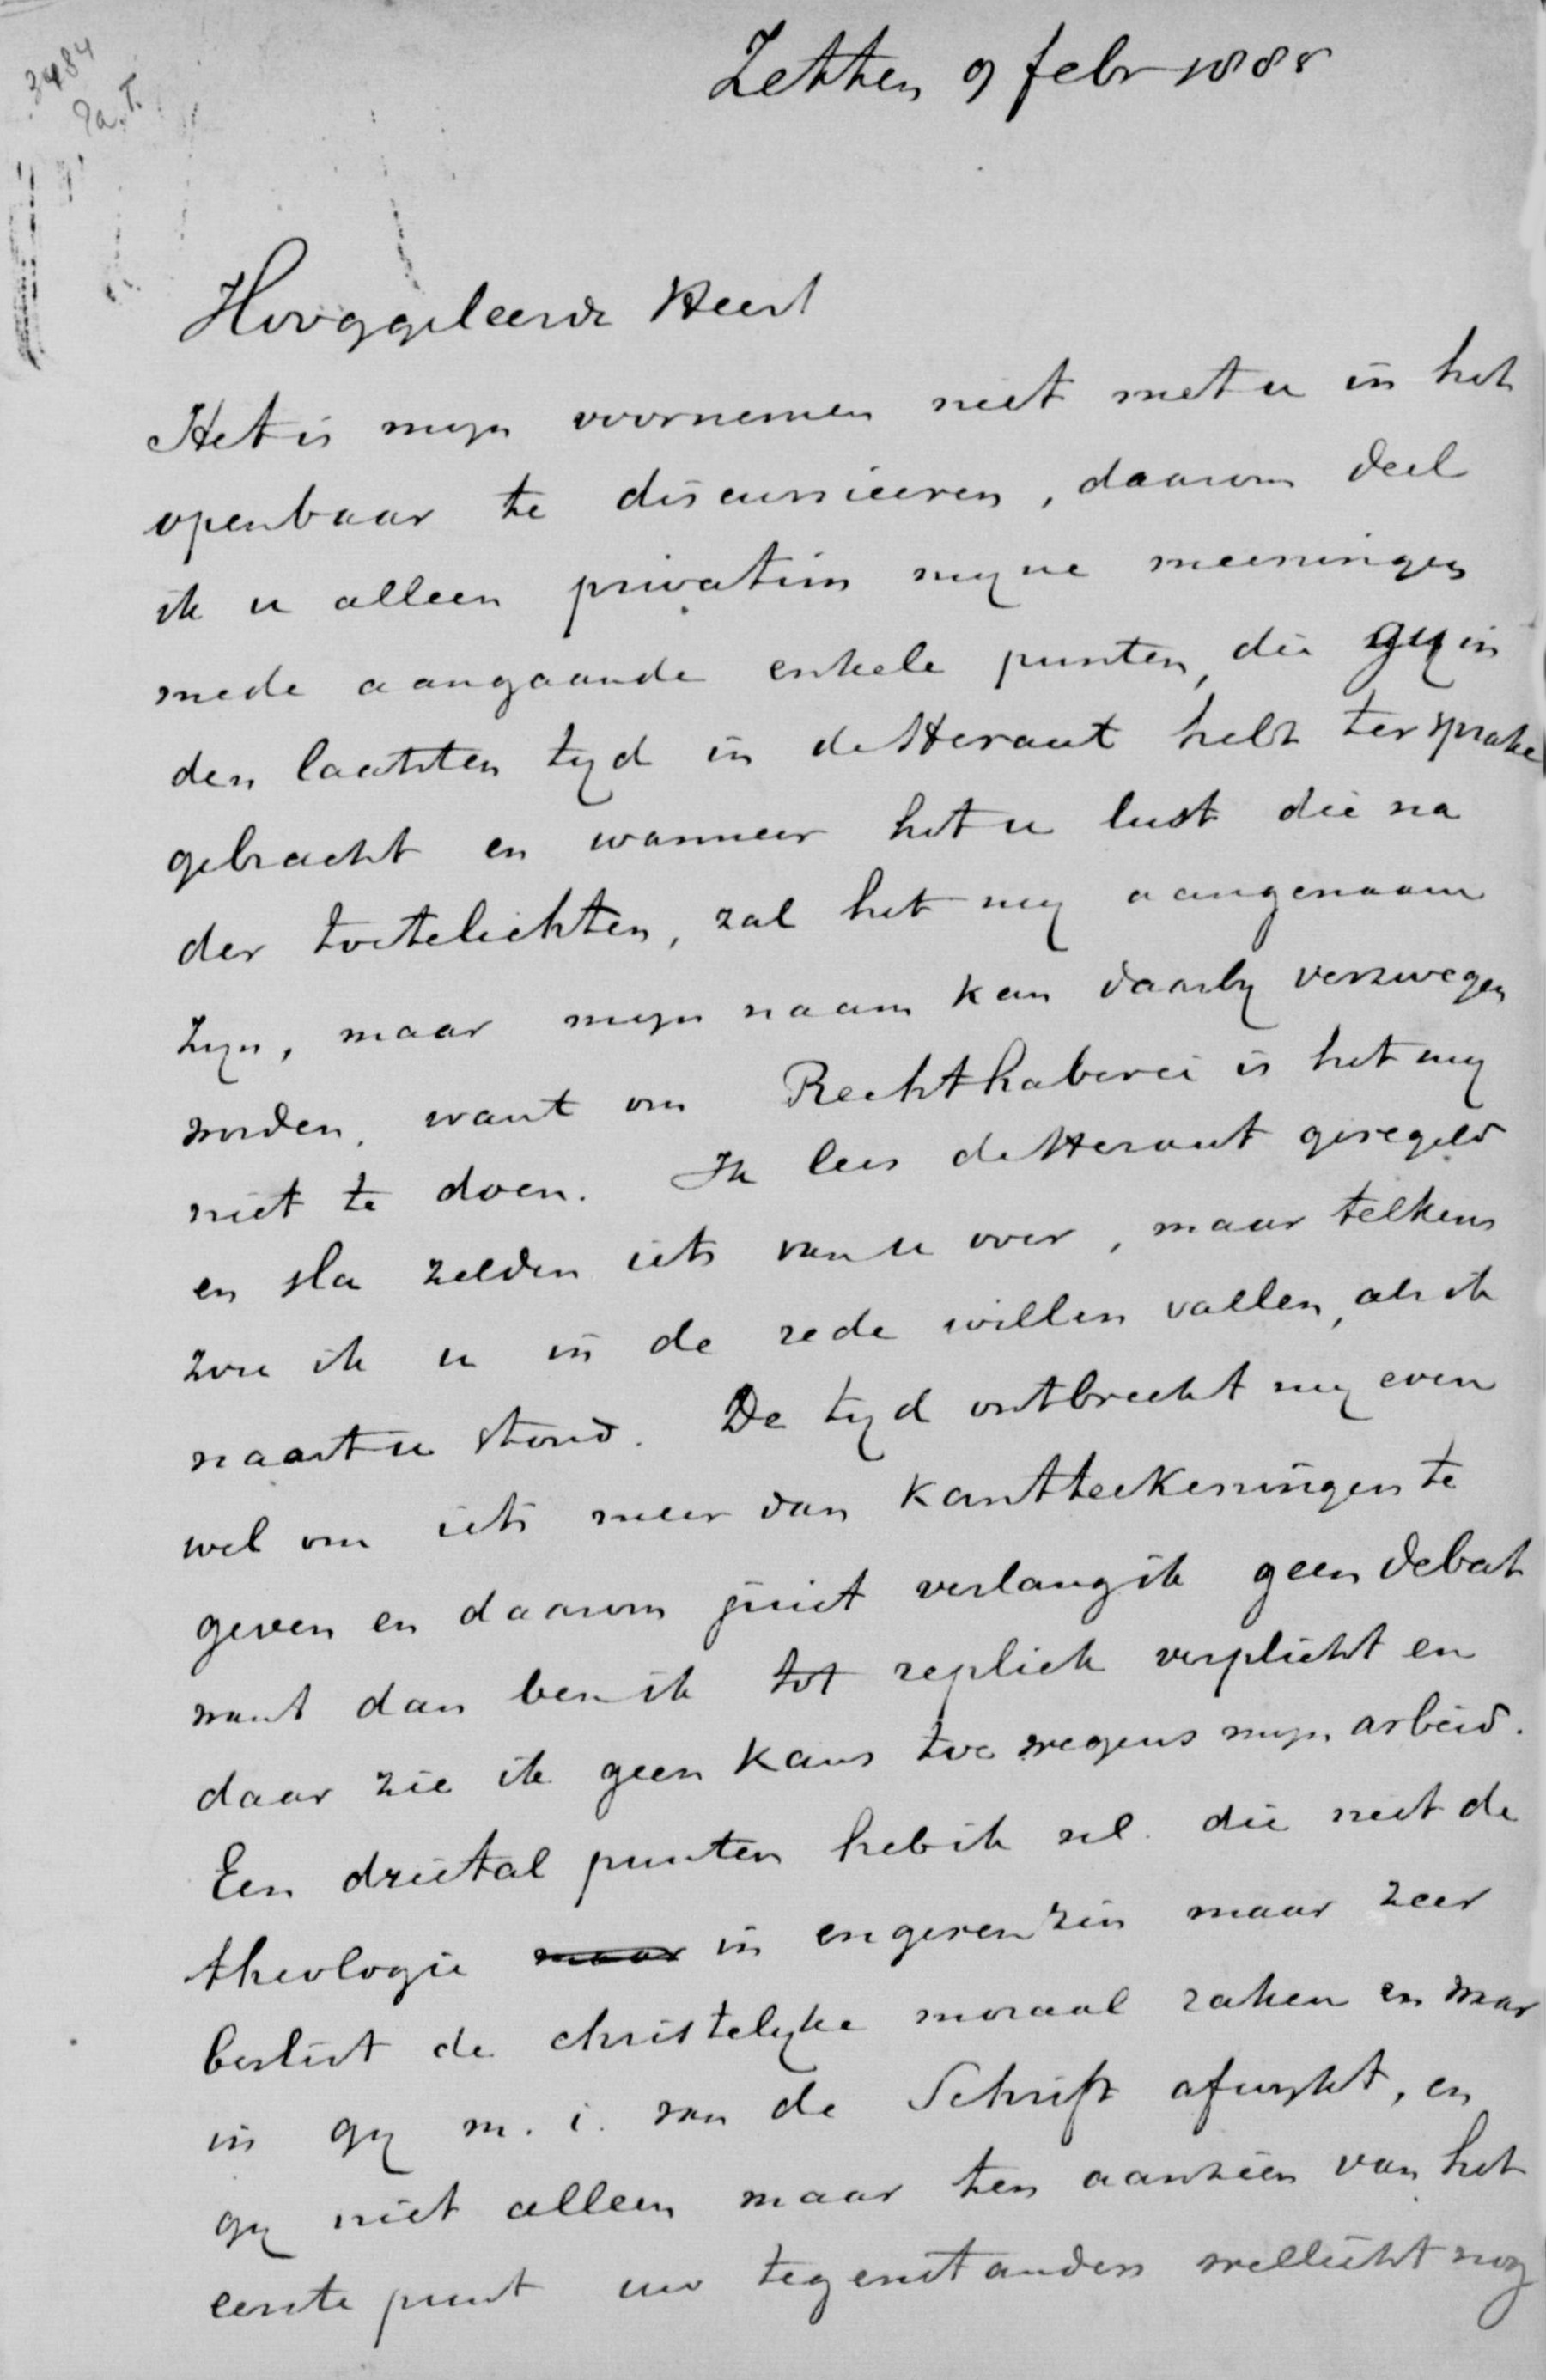 3484
Zetten 9 febr 1888
Hooggeleerde Heer!
Het is mijn voornemen niet met u in het
openbaar te discussieeren, daarom deel
ik u alleen privatim mijne meeningen
mede aangaande enkele punten, die gij in
den laatsten tijd in de Heraut hebt ter sprake
gebracht en wanneer het u lust die na
der toe te lichten, zal het mij aangenaam
zijn, maar mijn naam kan daarbij verzwegen
worden, want om Rechthaberei is het mij
niet te doen. Ik lees de Heraut geregeld
en sla zelden iets van u over, maar telkens
zou ik u in de rede willen vallen, als ik
naast u stond. De tijd ontbreekt mij even
wel om iets meer dan kantteekeningen te
geven en daarom juist verlang ik geen debat
want dan ben ik tot repliek verplicht en
daar zie ik geen kans toe wegens mijn arbeid.
Een drietal punten heb ik nl. die niet de
theologie maar in engeren zin maar zeer
beslist de christelijke moraal raken en waar
in gij m. i. van de Schrift afwijkt, en
gij niet alleen maar ten aanzien van het
eerste punt uw tegenstanders wellicht nog